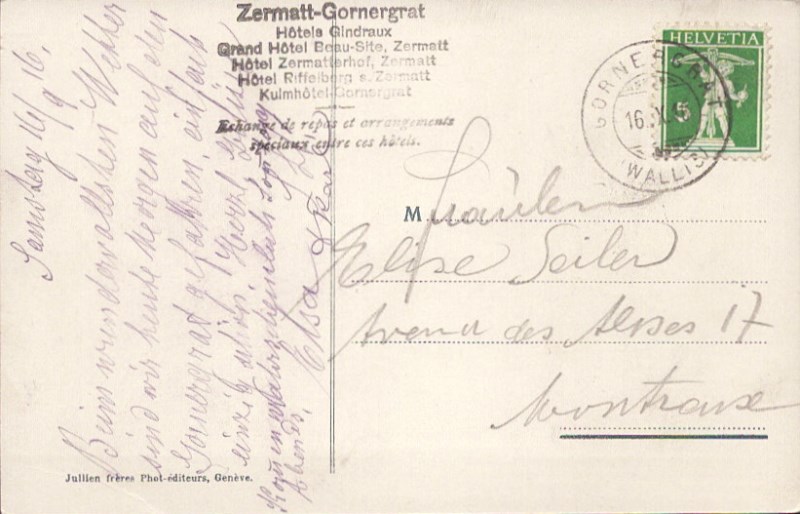 Zermatt-Gornergrat
Hôtels Gindraux
Grand Hôtel Beau-Site, Zermatt
Hôtel Zermatterhof, Zermatt
Hôtel Riffelberg s. Zermatt
Kulmhôtel Gornergrat
Echange de repas et arrangements
spéciaux entre ces hôtels.
HELVETIA
GORNERGRAT
16. IX. 16
(WALLIS)
Samstag 16/9 16.
Beim wundervollsten Wetter
sind wir heute Morgen auf den
Gornergrat gefahren, einfach
einzig schön. Herzl. Grüsse
Kommen wahrscheinlich Sonntag
Abends.
Elsa
M
Fräulein
Elise Seiler
Avenue des Alpes 17
Montreux
Jullien frères Phot-éditeurs, Genève.